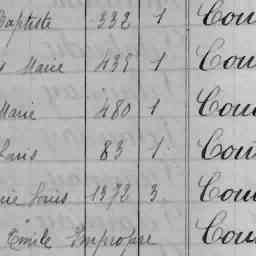 Baptiste 332 1 Cou
Marie 435 1 Cou
Marie 480 1 Cou
Louis 83 1 Cou
Louis 1372 3 Cou
Emile Impropre Cou